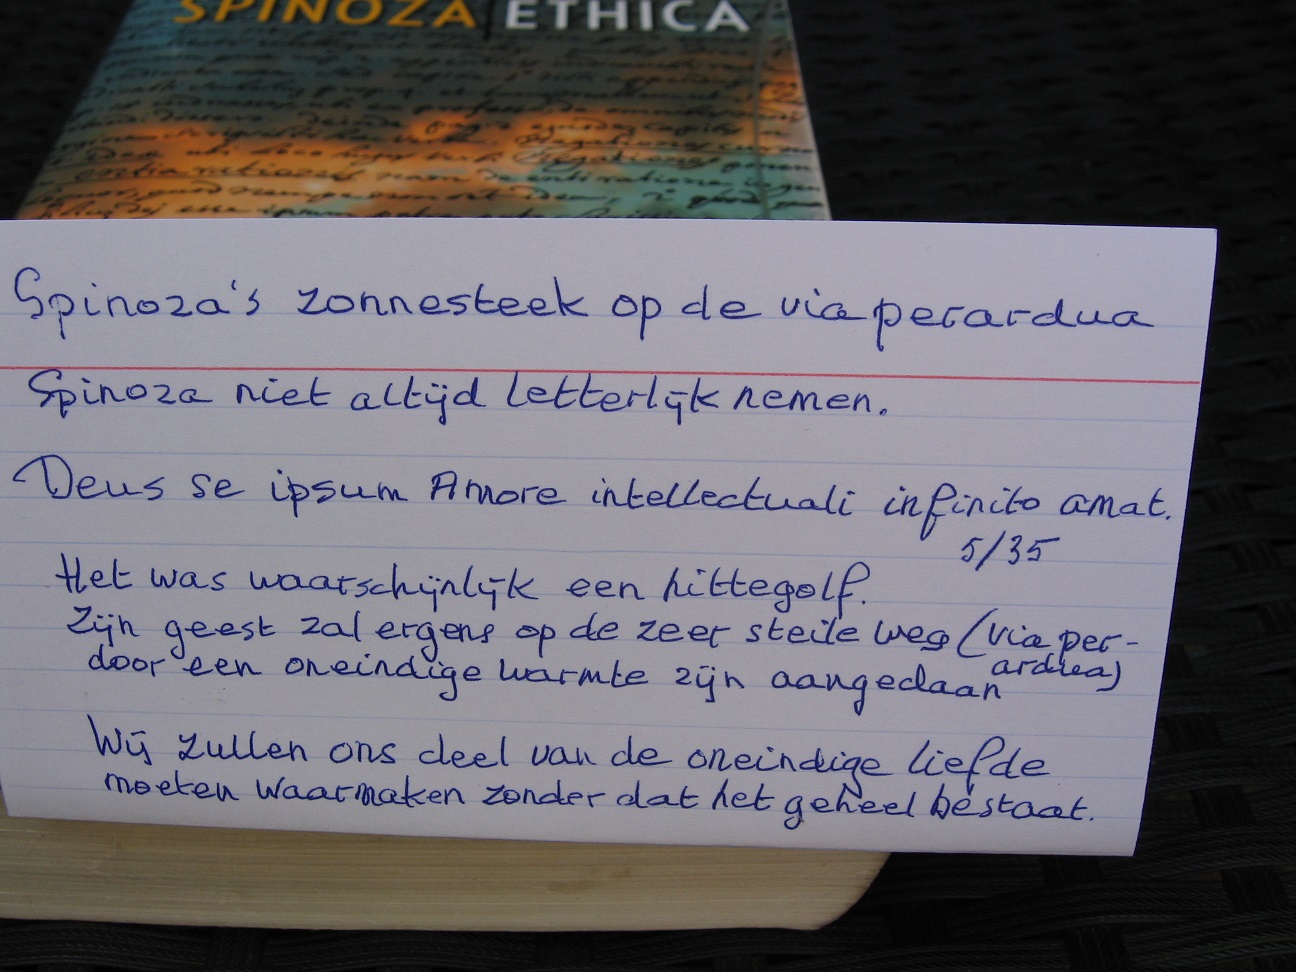 SPINOZA | ETHICA
Spinoza's zonnesteek op de via perardua
Spinoza niet altijd letterlijk nemen.
Deus se ipsum Amore intellectuali infinito amat.
5/35
Het was waarschijnlijk een hittegolf.
Zijn geest zal ergens op de zeer steile weg (via per-
ardua)
door een oneindige warmte zijn aangedaan
Wij zullen ons deel van de oneindige liefde
moeten waarmaken zonder dat het geheel bestaat.